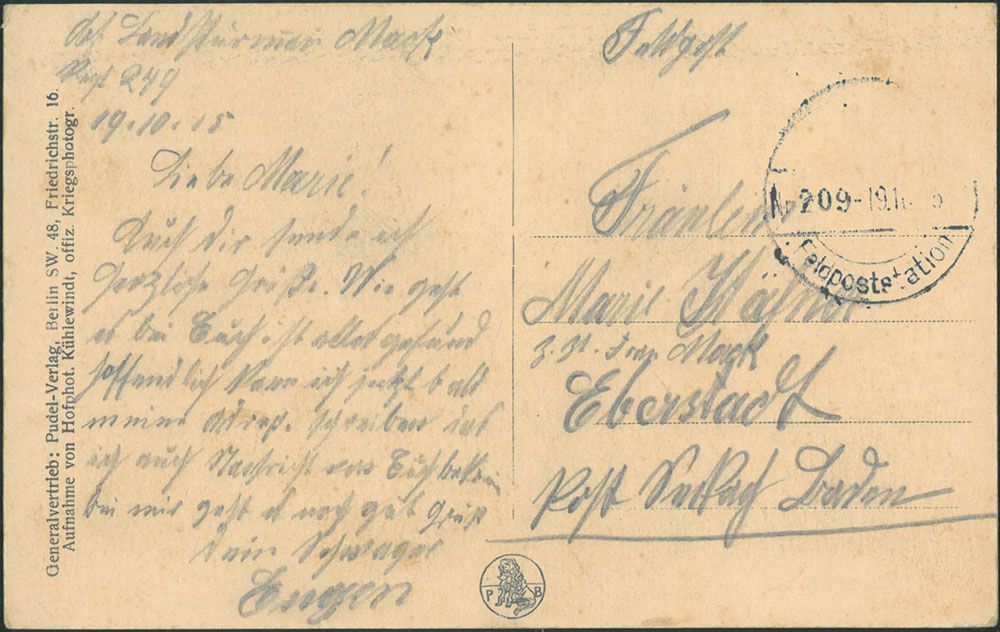 Abs. Landstürmer Mack
Regt 249
19.10.15
Liebe Marie!
Auch dir sende ich
herzliche Grüße. Wie geht
es bei Euch ist alles gesund
hoffendlich kann ich jetzt bald
meine adreß. schreiben das
ich auch Nachricht von Euch
bei mir geht es noch gut Gruß
dein Schwager
Eugen
Generalvertrieb: Pudel-Verlag, Berlin SW. 48, Friedrichstr. 16.
Aufnahme von Hofphot. Kühlewindt, offiz. Kriegsphotogr.
P B
Feldpost
Nr 209 -19.1
Feldpoststation
Fräulein
Marie
z. Zt. Frau Mack
Eberstadt
Post Baden